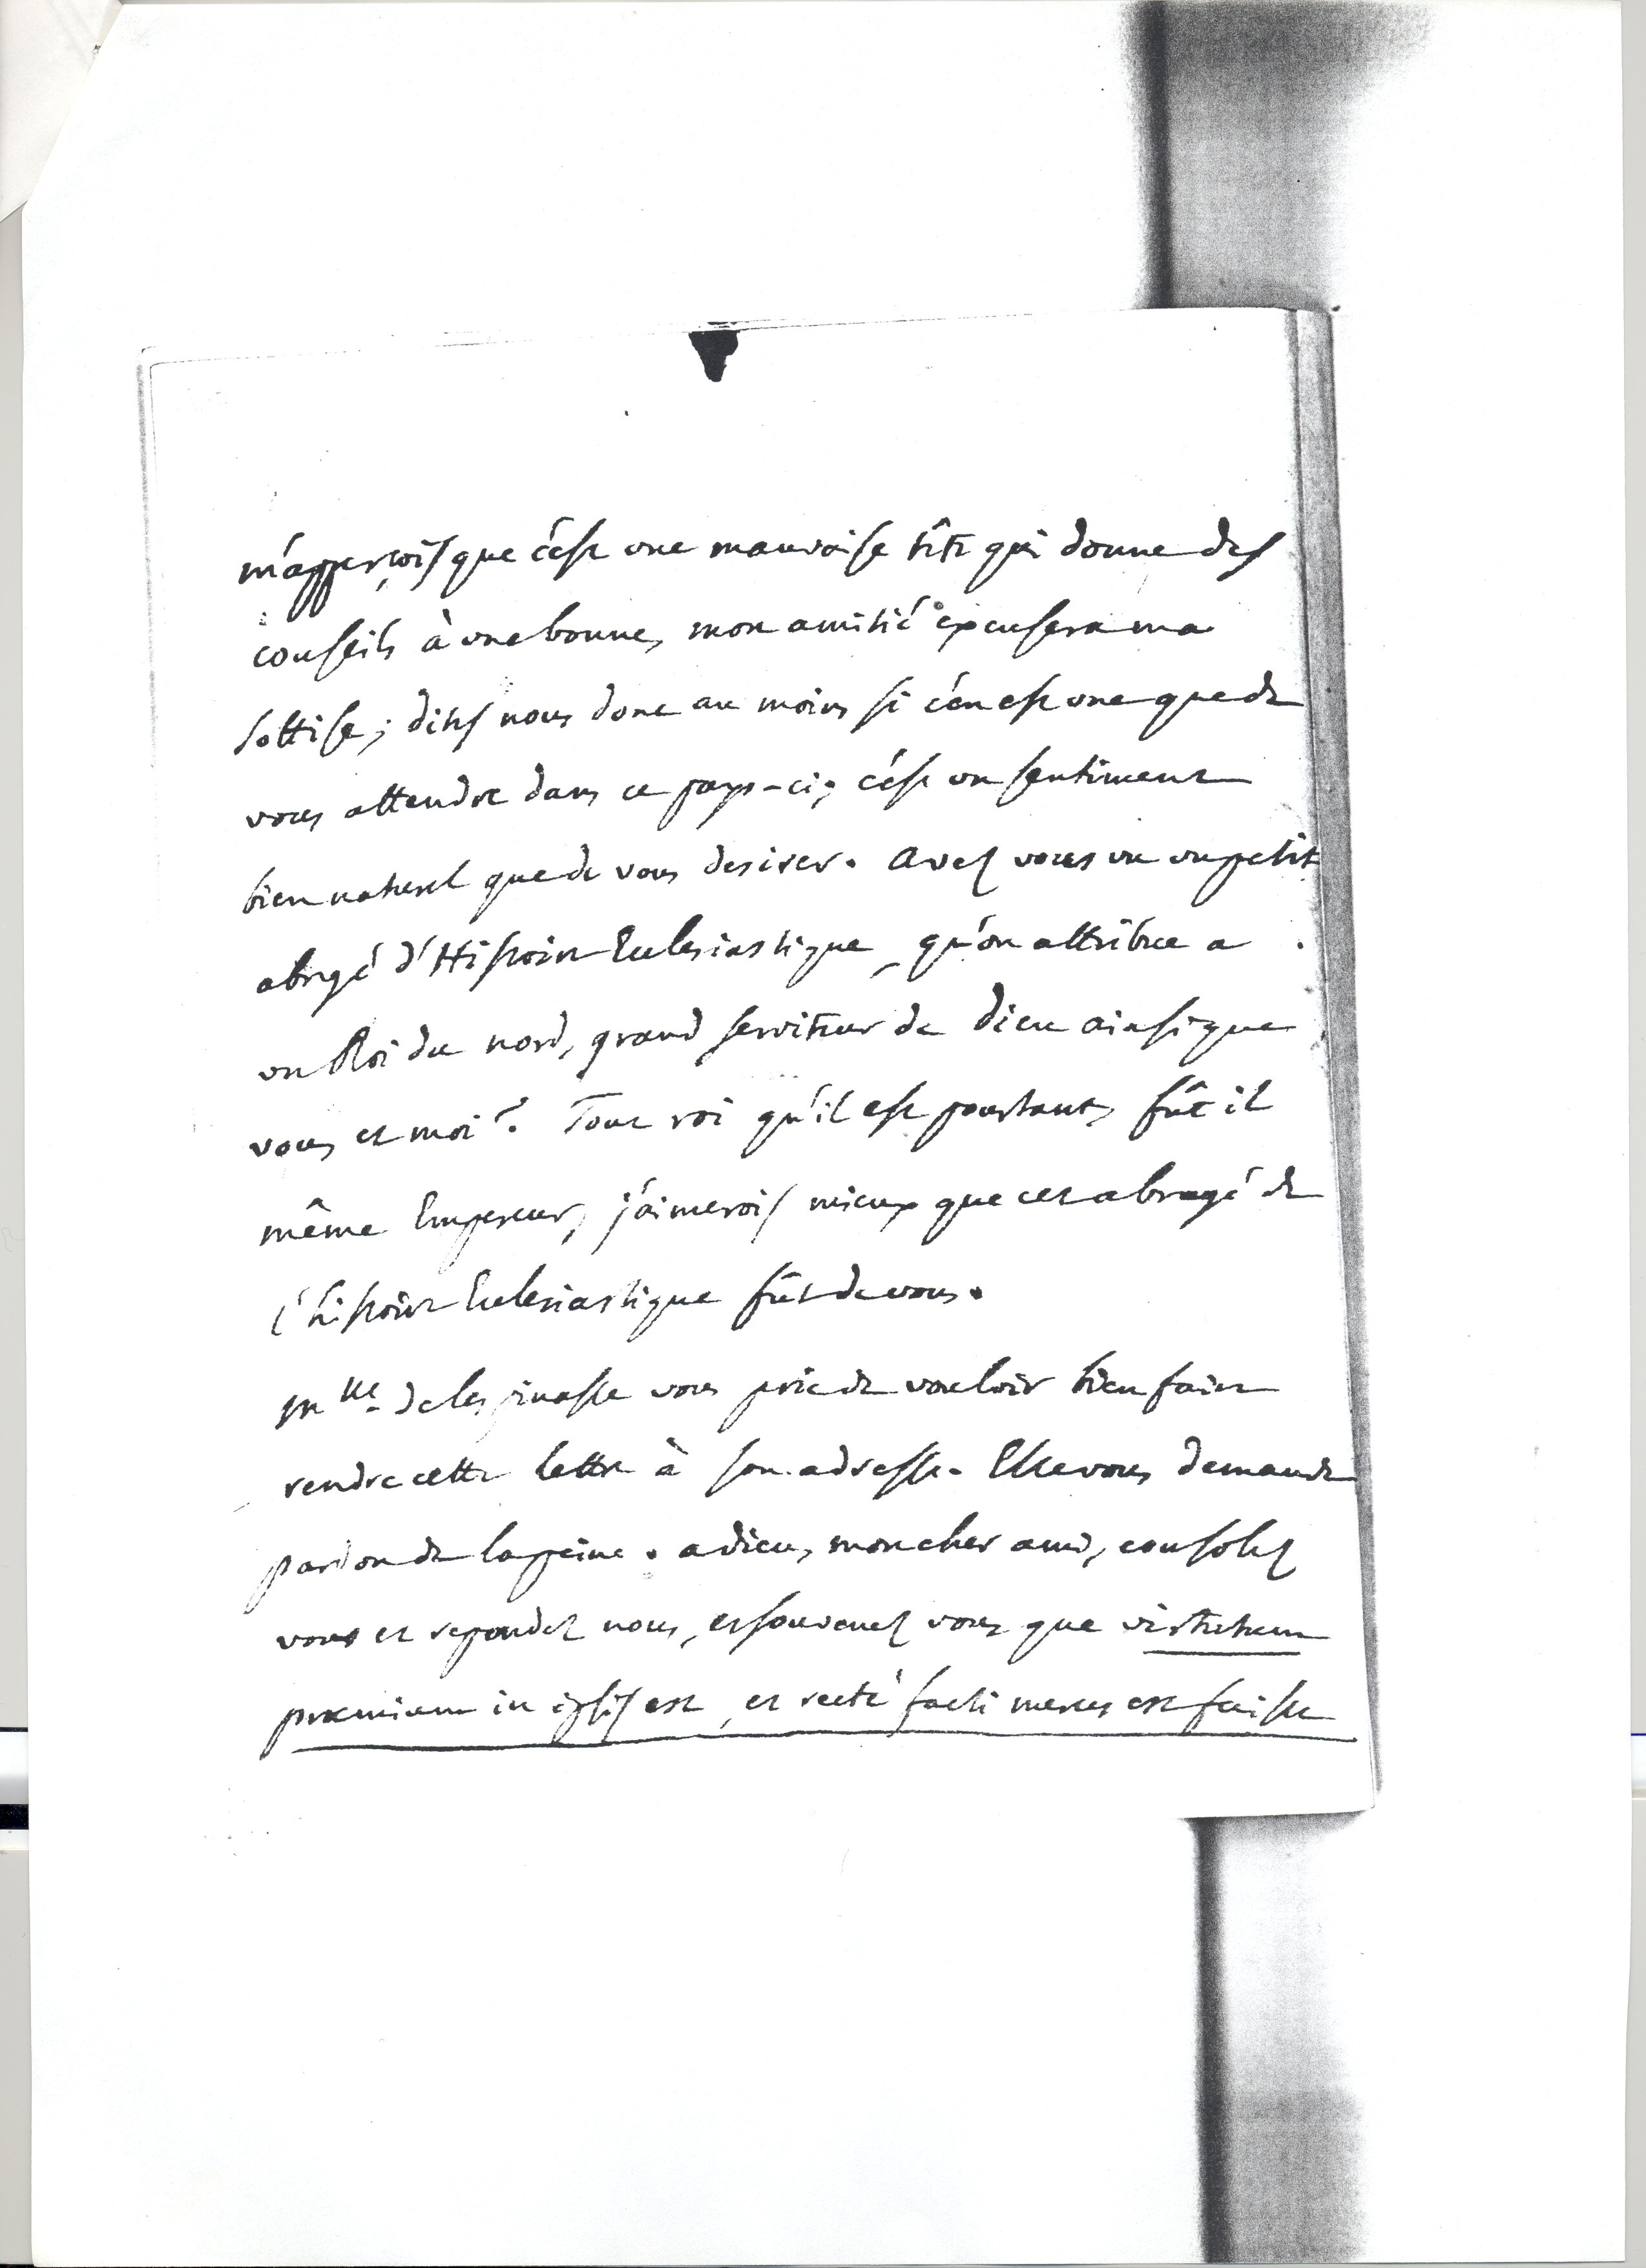 m'apperçois que c'est une mauvaise tête qui donne des
conseils à une bonne, mon amitié excusera ma
sottise; dites nous donc au moins si c'en est une que de
vous attendre dans ce pays-ci; c'est un sentiment
bien naturel que de vous desirer. avez vous vu un petit
abregé d'Histoire Ecclesiastique, qu'on attribue a
un Roi du nord, grand serviteur de Dieu ainsi que
vous et moi? Tout roi qu'il est pourtant, fût il
même Empereur, j'aimerois mieux que cet abregé de
l'histoire Ecclesiastique fût de vous.
Mlle de lespinasse vous prie de vouloir bien faire
rendre cette lettre à son adresse. Elle vous demande
pardon de la peine. adieu, mon cher ami, consolez
vous et repondez nous, et souvenez vous que virtutum
præmium in ipsis est, et rectè facti merces est fecisse